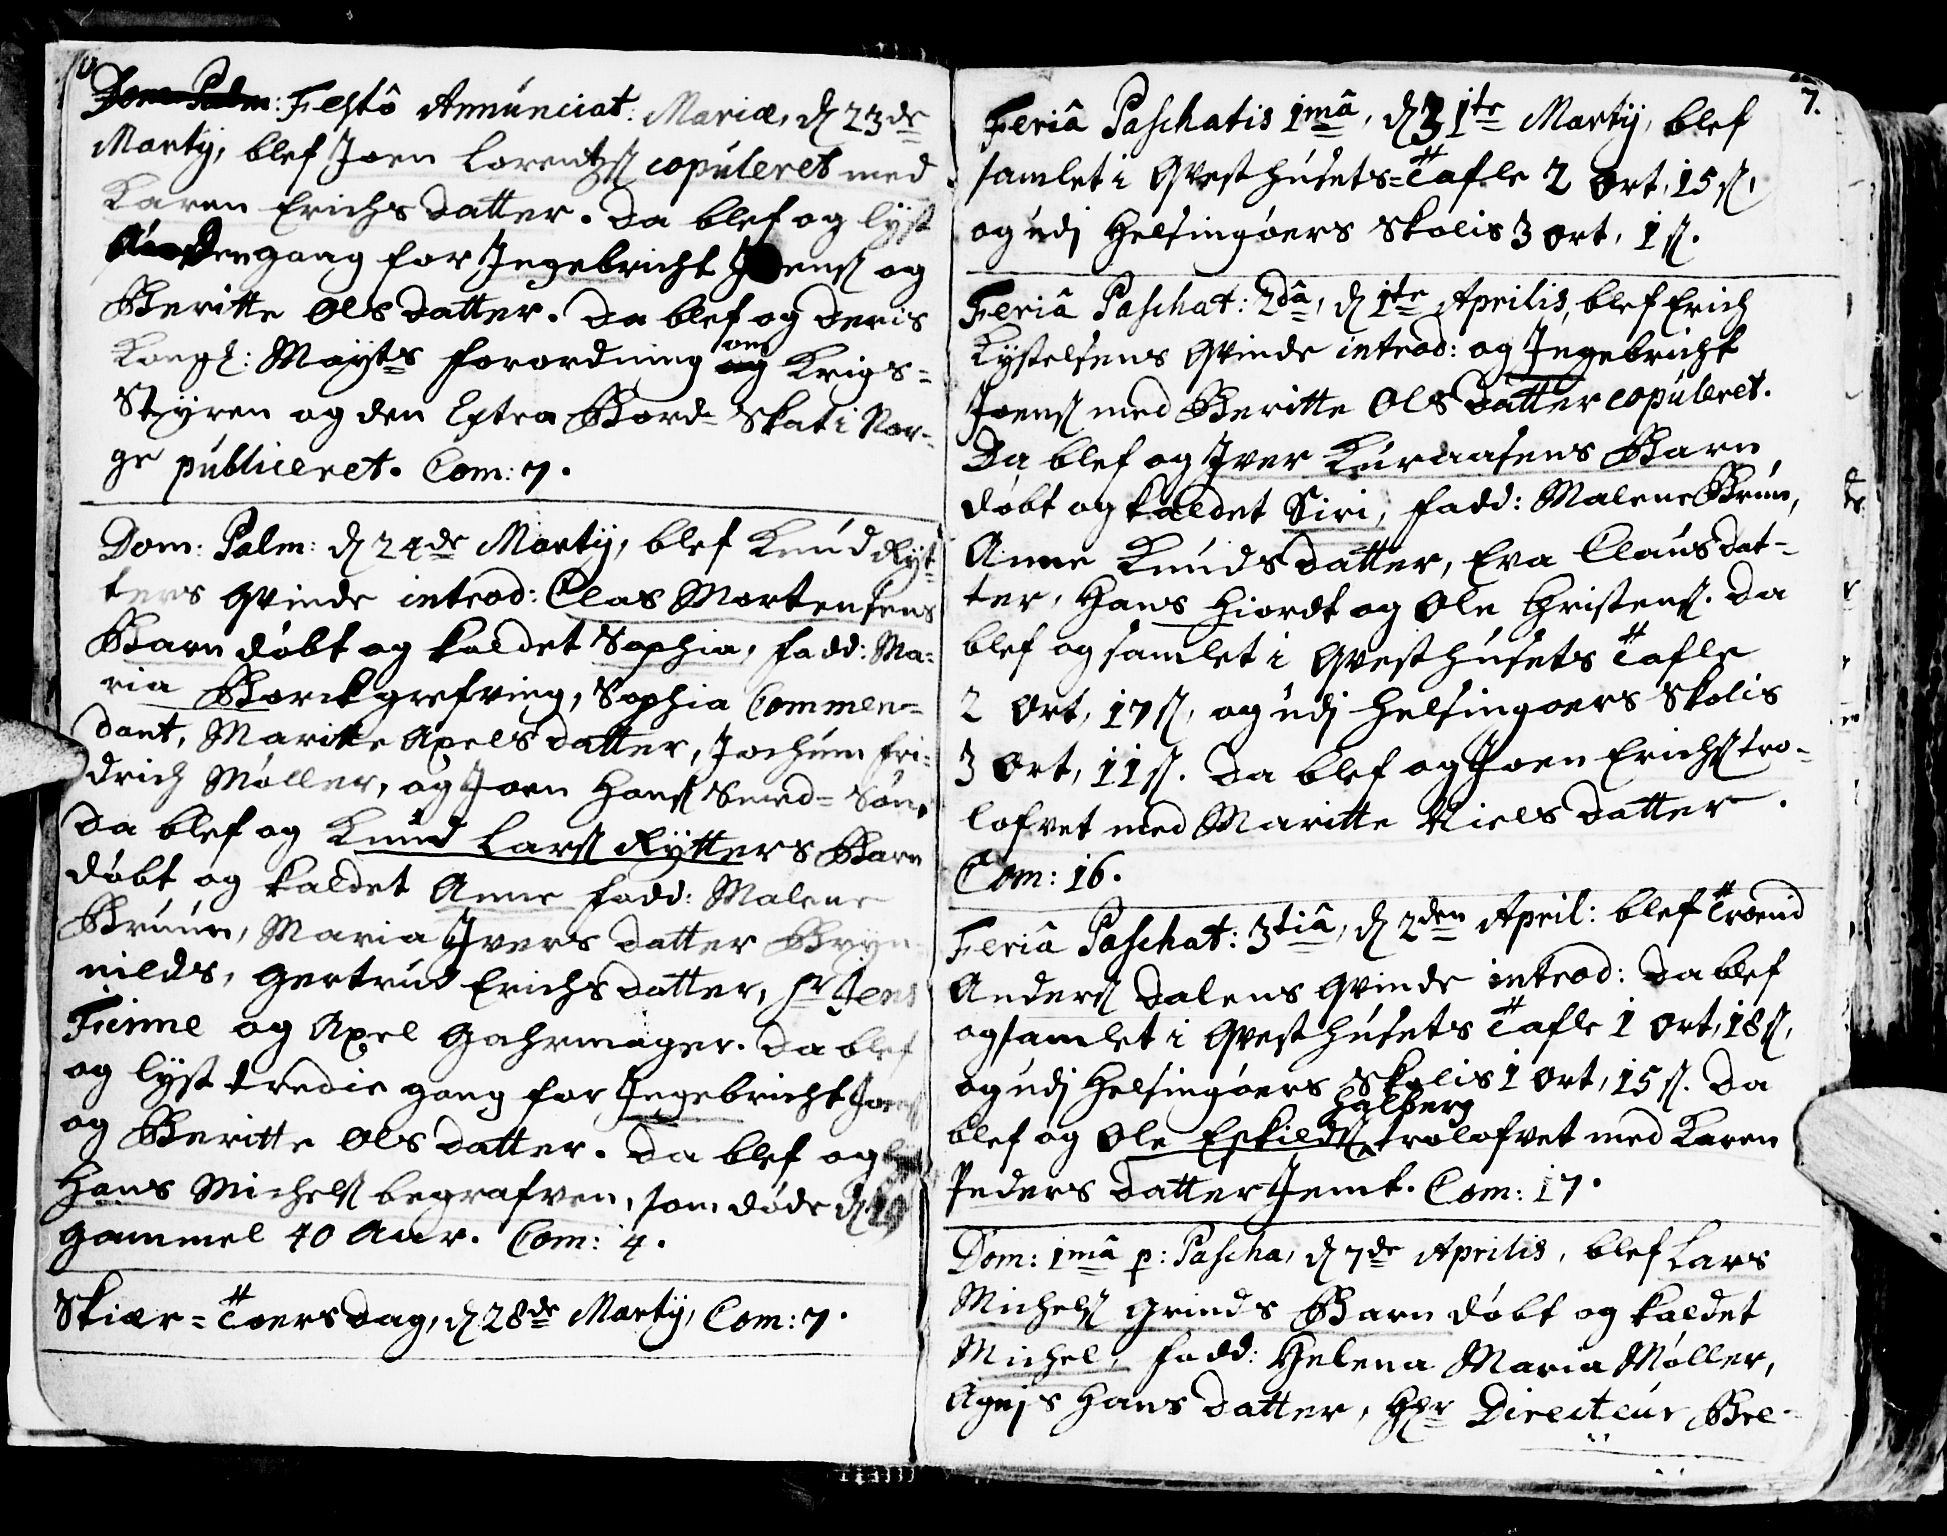 Dom: Palm: Festô Annúnciat: Mariæ, d 23de
Martij, blef Joen Lorentzs copúleret med
Karen Erichs datter. Da blef og lyst
Anden gang for Ingebricht Joens og
Beritte Ols datter. Da blef og Deris
Kongl: Mayts Forordning om Krigs-
Styren og den Extra Bord-Skat i Nor-
ge públiceret. Com: 7.
Dom: Palm: d 24de Martij, blef Knúd Ryt-
ters Qvinde introd: Clas Mortensens
Barn døbt og kaldet Sophia, fadd: Ma-
ria Borckgrefving, Sophia Commen-
dant, Maritte Axels datter, Jochúm Fri-
drich Møller, og Joen Hans Smed-Søn.
Da blef og Knúd Lars Rytters Barn
døbt og kaldet Anne fadd: Malene
Brúún, Maria Ivers datter Bryn-
nilds, Gertrud Erichs datter, Hr Jens
Finne og Axel Gahrmager. Da blef
og lyst tredie gang for Ingebricht Joens
og Beritte Ols datter. Da blef og
Hans Michels begrafven, som døde d 19
gammel 40 Aar. Com: 4.
Skiær-Toersdag, d 28de Martij, Com: 7.
7.
Feriâ Paschatis 1mâ, d 31te Martij, blef
samlet i Qvesthúsets-Tafle 2 Ort, 15 s,
og udj Helsingøers Skolis 3 Ort, 1 s.
Feriâ Paschat: 2dâ, d 1te Aprilis, blef Erich
Kystelsens Qvinde introd: og Ingebricht
Joens med Beritte Ols datter copúleret.
Da blef og Iver Kúraasens Barn
døbt og kaldet Siri, fadd: Malene Brún,
Anne Knúds datter, Eva Claús dat-
ter, Hans Hiordt og Ole Christens. Da
blef og samlet i Qvesthúsets Tafle
2 Ort, 17 s, og udj Helsingøers Skolis
3 Ort, 11 s. Da blef og Joen Erichs tro-
lofvet med Maritte Niels datter.
Com: 16.
Feriâ Paschat: 3tiâ, d 2den April: blef Troend
Anders Dalens Qvinde introd: Da blef
og samlet i Qvesthúsets Tafle 1 Ort, 18 s,
og udj Helsingøers Skolis 1 Ort, 15 s. Da
Halberg
blef og Ole Eskilds trolofvet med Karen
Peders datter Jemt. Com: 17.
Dom: 1mâ p: Pascha, d 7de Aprilis, blef Lars
Michels Grinds Barn døbt og kaldet
Michel, fadd: Helena Maria Møller,
Agnis Hans datter, Hr Directeúr Bre-